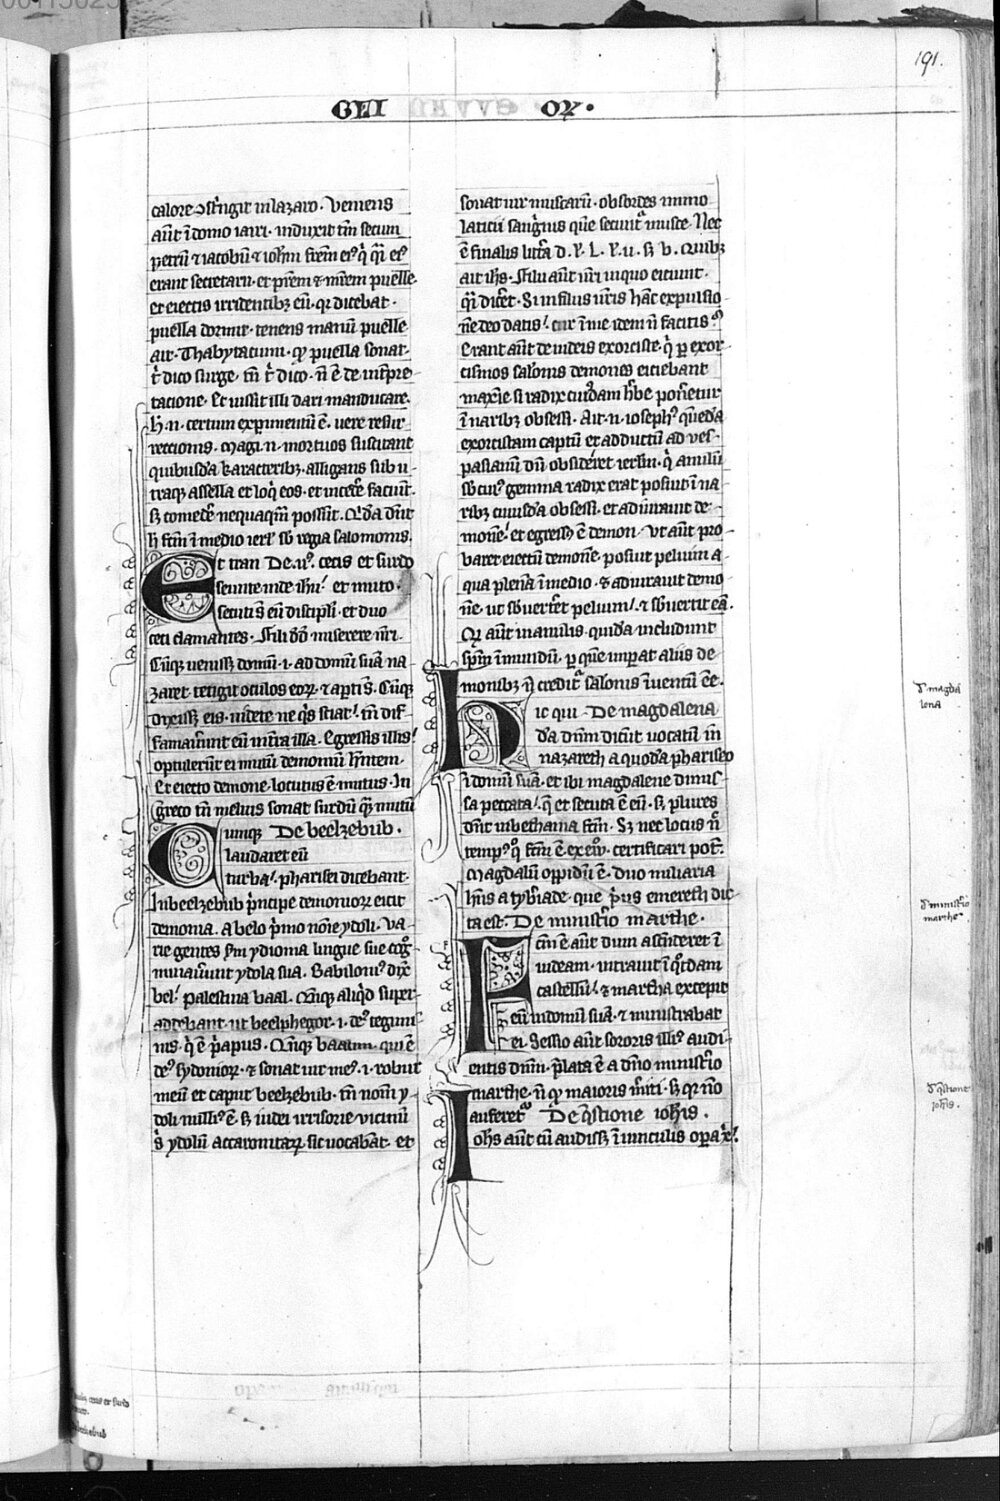 191.
GELI OR·
calore ɔstrīgit in lazaro. Veniens
aūt ī domo iairi. induxit tm̄ secum
petrū ⁊ iacobū ⁊ ioh̄m fr̄em eiꝰ
erant secretarii. et pr̄em ⁊ mr̄em puelle.
et eiectis irridentibꝫ eū. qꝛ dicebat.
puella dormit. tenens manū puelle
ait. Thabytacumi. qd̄ puella sonat.
t̄ dico surge. tn̄ t̄ dico. n̄ ē de int̄pre
tacione. Et iussit illi dari manducare.
h̄. n. certum experimentū ē. vere resur
rectionis. Magi. n. mortuos suscitant
quibusdā karacteribꝫ. alligans sub u
traqꝫ assella et loq̄ eos. et incedere faciūt.
sꝫ comedere nequaqm̄ possūt. Qd̄a dn̄t
h̄ fcm̄ ī medio ierl̄ sb̄ regia salomonis.
Et tran De. ııº. cecis et surdo
seunte inde ihu. et muto.
secuti sūt eū discipli. et duo
ceci clamantes. Fili dd̄ miserere nr̄i.
Cūqꝫ uenissꝫ domū. i. ad domū suā na
zaret. tetigit oculos eoꝝ. ⁊ apti sūt. Cūqꝫ
dixissꝫ eis. uidete ne q̄s sciat. tn̄ dif
famauerunt eū in terra illa. Egressis illis
optulerūt ei mutū demoniū hn̄tem.
Et eiecto demone. locutus ē mutus. In
greco tn̄ melius sonat surdū qꝫ mutū
Cumqꝫ De beelzebub.
laudaret eū
turba. pharisei dicebant.
In beelzebub pͥncipe demonioꝝ eicit
demonia. A belo pͥmo noīe ydoli. Va
rie gentes sm̄ ydioma lingue sue cog
minauūnt ydola sua. Babiloniꝰ dix̄
bel. palestina baal. Cūqꝫ aliqͥd super
addebant. ut beelphegor. i. deꝰ tegumi
nis. q̄ ē pͥapus. Cūqꝫ baalim. qui ē
deꝰ sydonioꝝ. ⁊ sonat uir meꝰ. i. robur
meū et caput beelzebub. tn̄ nom̄ y
doli nulliꝰ ē. sꝫ iudei irrisorie uicinū
sͥ ydolū accaronitaꝝ. sic uocabāt. et
sonat uir muscaꝝ. ob sordes immo
laticii sang̈nis que secūt musce. Nec
ē finalis litt̄a d. ł. l. ł. u. sꝫ b. Quibꝫ
ait ihs. Filii aūt ur̄i in quo eiciunt.
q̄i dic̄et. Si in filiis ur̄is hāc expulsio
nē deo datis. cur ī me idem n̄ facitis
Erant aūt de iudeis exorciste. q̄ ꝑ exor
cismos salōnis demones eiciebant
maxīe si radix cuidam h̄be pōnetur
ī naribꝫ obsessi. Ait. n. iosephꝰ quēda
exorcistam captū et adductū ad ves
pasianū dn̄ obsideret ierlm̄. q̄ anulū
sb̄ cuiꝰ gemma radix erat posuit ī na
ribꝫ cuiusdā obsessi. et adiurauit de
monē. et egressꝰ ē demon. Vt aūt pro
baret eiectū demonē. posuit peluim a
qua plenā ī medio. ⁊ adiurauit demo
nē. ut sb̄uerteret peluim. ⁊ sb̄uertit eā.
Qꝛ aūt in anulis. quidā includunt
spm̄ ī mundū. ꝑ quē imperat aliis de
monibꝫ
hic qui De magdalena
dā dn̄m dicūt uocatū in
nazareth a quodā phariseo
ī domū suā. et ibi magdalene dimis
sa peccata. q̄ et secuta ē eū. sꝫ plures
dn̄t in bethania fcm̄. Sꝫ nec locus nec
tempꝰ certificari pōt.
Magdalū oppidū ē. duo miliaria
hn̄s a tybriade. que pͥus emereth dic
ta est. De ministͥo marthe.
Factū ē aūt dum ascenderet ī
iudeam. intrauit ī qd̄dam
castellū. ⁊ martha excepit
eū in domū suā. ⁊ ministrabat
ei. Sessio aūt sororis illiꝰ audi
entis dn̄m. plata ē a dn̄o ministͥo
marthe. n̄ qꝛ maioris mͥti. sꝫ qꝛ nō
auferet̄. De q̄stione iohīs.
Iohs aūt cū audissꝫ ī uinculis opa xͥ.
d̄ magda
lena
d̄ ministͥio
marthe.
d̄ q̄stione
ioh̄is.